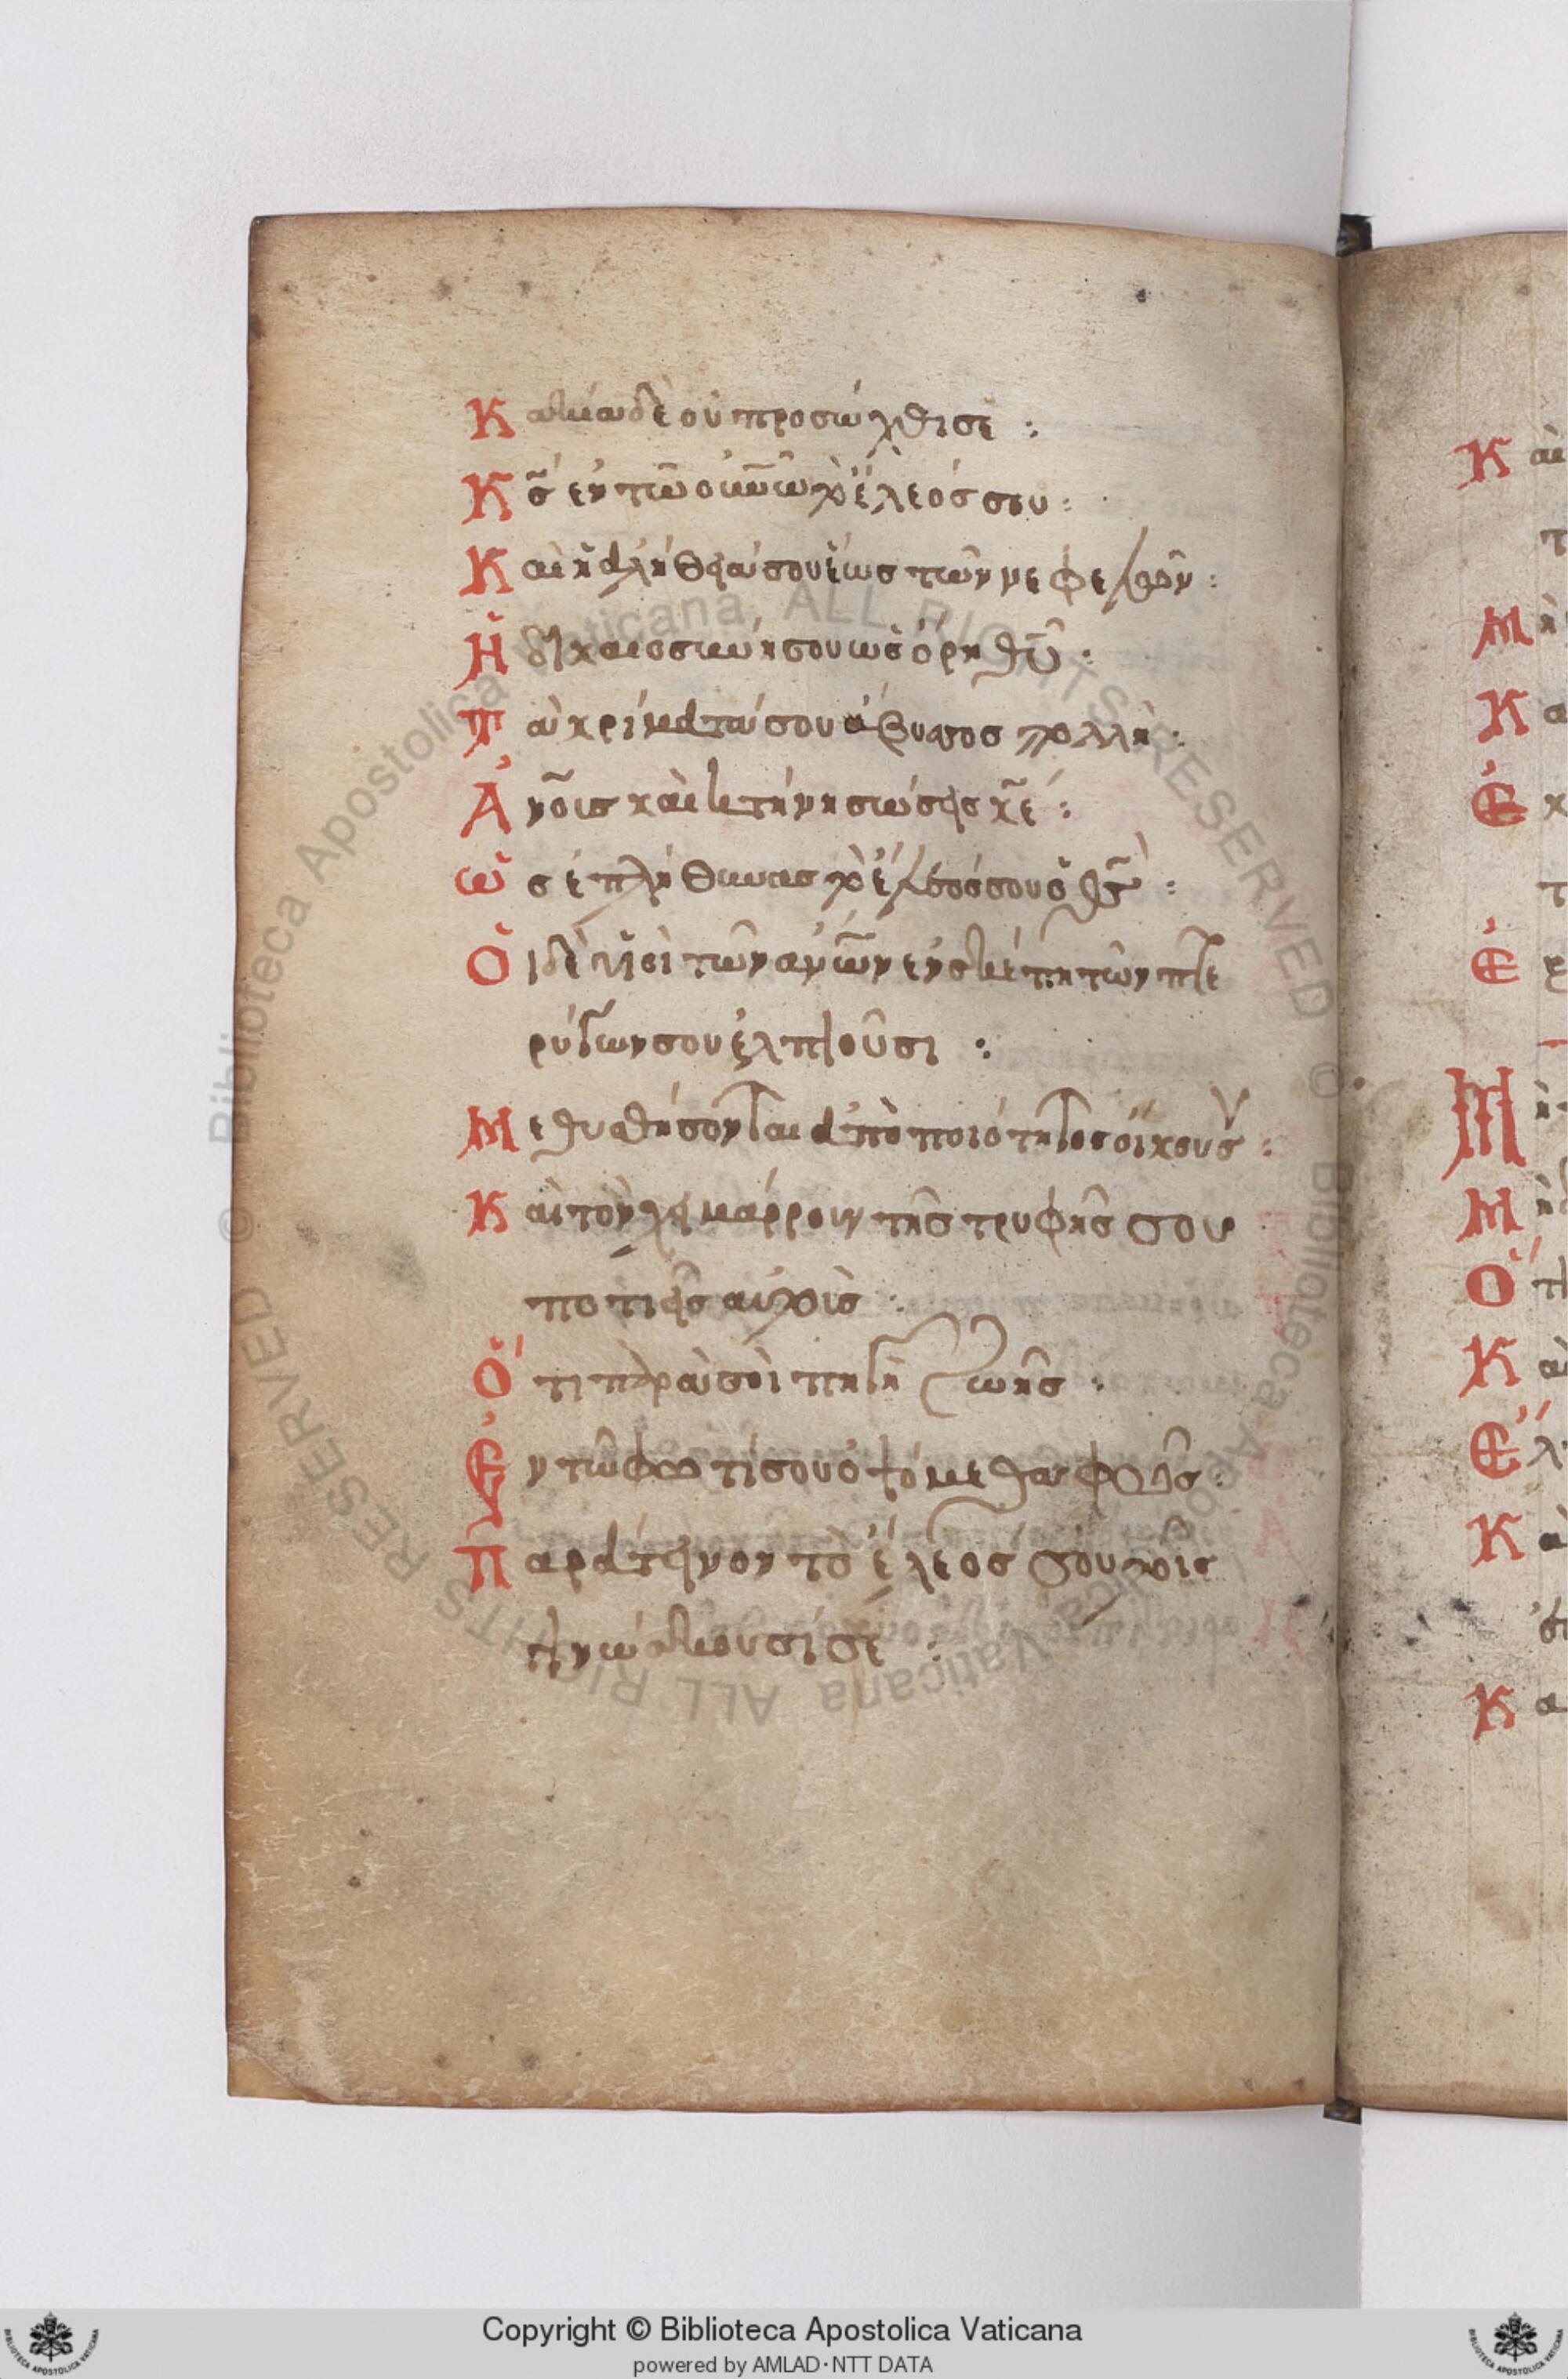 Κακία δὲ οὐ προσώχθισε :
Κ̅ς̅ ἐν τῶ ο̅υ̅ν̅ῶ τὸ ἔλεός σου :
Καὶ ἡ ἀλήθειά σου ἕως τῶν νεφελῶν :
Ἡ δικαιοσύνη σου ὡς ὄρη θ̅υ̅ :
Τὰ κρίματά σου ἄβυσσος πολλή :
Ἀ̅ν̅ο̅υς καὶ κτήνη σώσεις κ̅ε̅ :
Ὡς ἐπλήθυνας τὸ ἔλεός σου ὁ θ̅ς̅ :
Οἱ δὲ υἱοὶ τῶν α̅ν̅ω̅ν ἐν σκέπη τῶν πτε
ρύγων σου ἐλπιοῦσι :
Μεθυσθήσονται ἀπὸ πιότητος οἴκου σου :
Καὶ τὸν χειμάρρουν τῆς τρυφῆς σου
ποτιεῖς αὐτοὺς :
Ὅτι παρὰ σοὶ πηγὴ ζωῆς :
Ἐν τῶ φωτί σου ὀψόμεθα φῶς :
Παράτεινον τὸ ἔλεός σου τοῖς
γινώσκουσί σε :
Copyright © Biblioteca Apostolica Vaticana
powered by AMLAD・NTT DATA